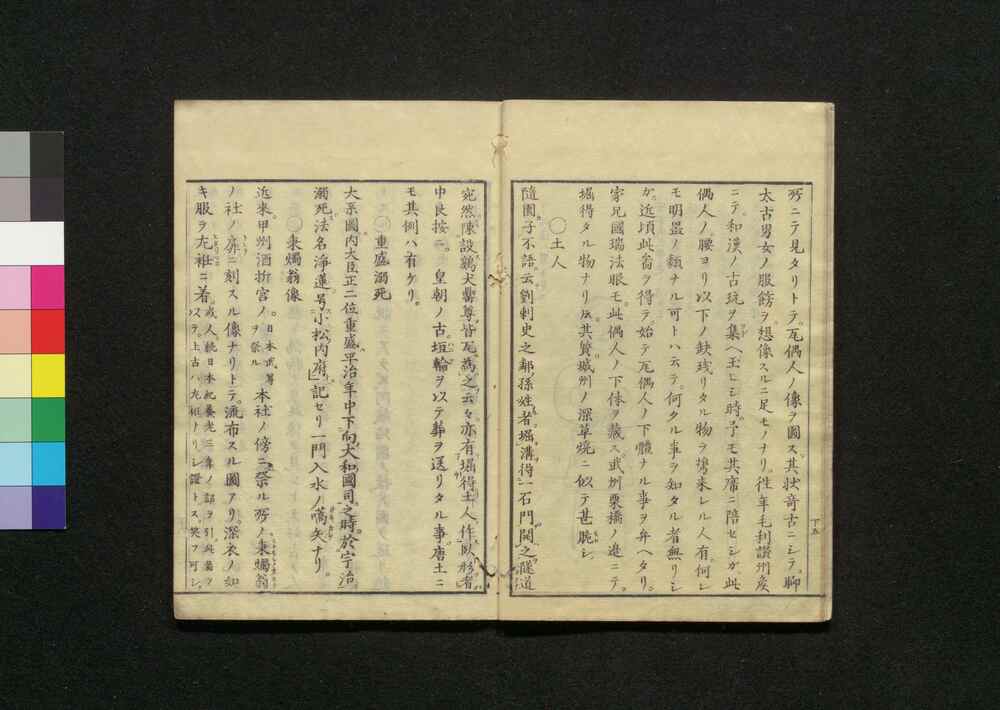 所ニテ見タリトテ。瓦偶人ノ像ヲ圖ス。其状奇古ニシテ。聊
太古男女ノ服餝ヲ。想像スルニ足モノナリ。往年毛利讃州矦
ニテ和漢ノ古玩ヲ集ヘ玉ヒシ時。予モ其席ニ陪セシガ。此
偶人ノ腰ヨリ以下ノ缺残リタル物ヲ携来レル人有。何レ
モ明器ノ類ナル可トハ云テ。何タル事ヲ知タル者無リシ
ガ。近頃此畨ヲ得テ。始テ瓦偶人ノ下體ナル事ヲ弁ヘタリ。
家兄國瑞法眼モ。此偶人ノ下体ヲ蔵ス。武州栗橋ノ邉ニテ。
堀得タル物ナリ。其質城州ノ深草焼ニ似テ甚脆シ
〇土人
隨園子不語云劉刺史之鄰孫姓者。堀溝得一石門開之隧道
宛然陳設鷄犬罍尊皆瓦為之云々。亦有堀得土人作臥形者
中良按ニ。皇朝ノ古埴輪ヲ以テ葬ヲ送リタル事。唐土ニ
モ其例ハ有ケリ。
〇重盛溺死
大系圖内大臣正二位重盛。平治年中下向大和國司之時。於宇治
溺死法名淨蓮号小松内府」記セリ一門入水ノ嚆矢ナリ。
〇来蠋翁像
近来。甲州酒折宮ノ。日本武尊ヲ祭ル本社ノ傍ニ。祭ル所ノ。秉燭翁
ノ社ノ扉ニ刻スル像ナリトテ。流布スル圖アリ。深衣ノ如
キ服ヲ左衽ニ著。或人続日本紀養老三年ノ詔ヲ引此畨ヲ以テ。上古ハ左衽ノリシ證トス。笑フ可シ。